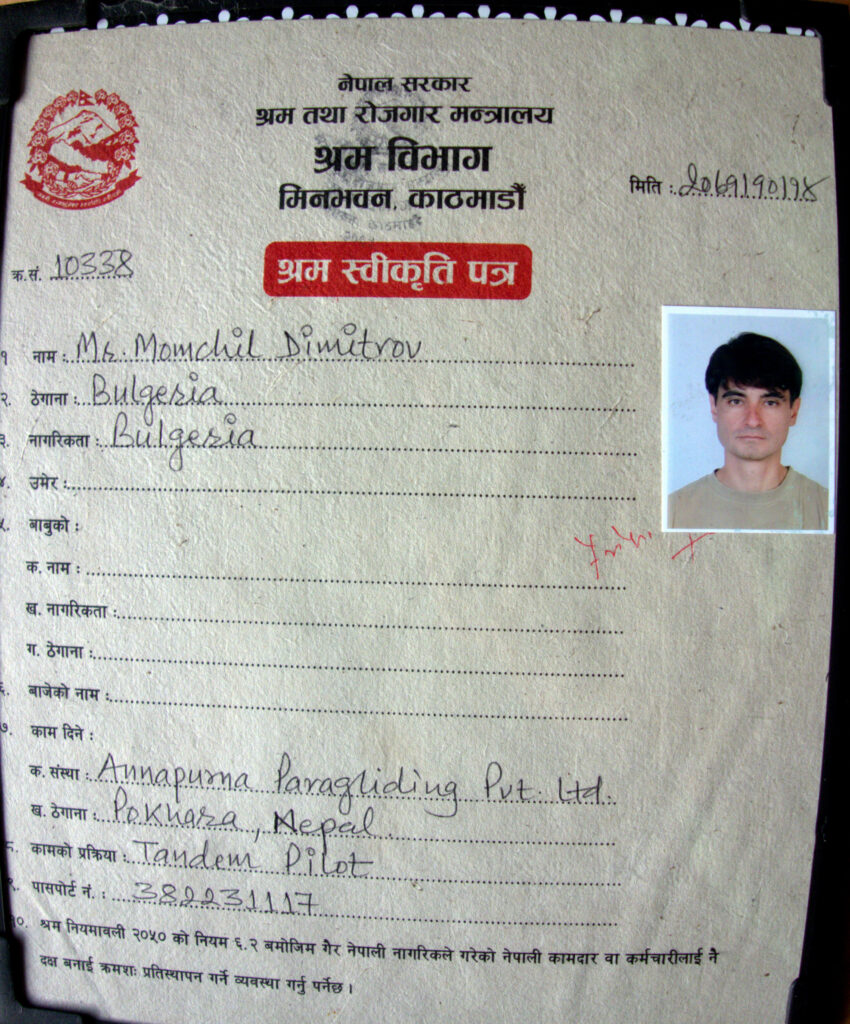 नेपाल सरकार
श्रम तथा रोजगार मन्त्रालय
श्रम विभाग
मिनभवन, काठमाडौं
मिति : 2069190198
क्र.सं. 10338
श्रम स्वीकृति पत्र
१ नाम : Mr. Momchil Dimitrov
२. ठेगाना : Bulgeria
३. नागरिकता : Bulgeria
४. उमेर :
५. बाबुको :
क. नाम :
ख. नागरिकता :
ग. ठेगाना :
६. बाजेको नाम :
७. काम दिने :
क. संस्था : Annapurna Paragliding Pvt. Ltd.
ख. ठेगाना : Pokhara, Nepal
८. कामको प्रक्रिया : Tandem Pilot
९. पासपोर्ट नं. : 382231117
१०. श्रम नियमावली २०५० को नियम ६.२ बमोजिम गैर नेपाली नागरिकले गरेको नेपाली कामदार वा कर्मचारीलाई नै
दक्ष बनाई क्रमशः प्रतिस्थापन गर्ने व्यवस्था गर्नु पर्नेछ ।